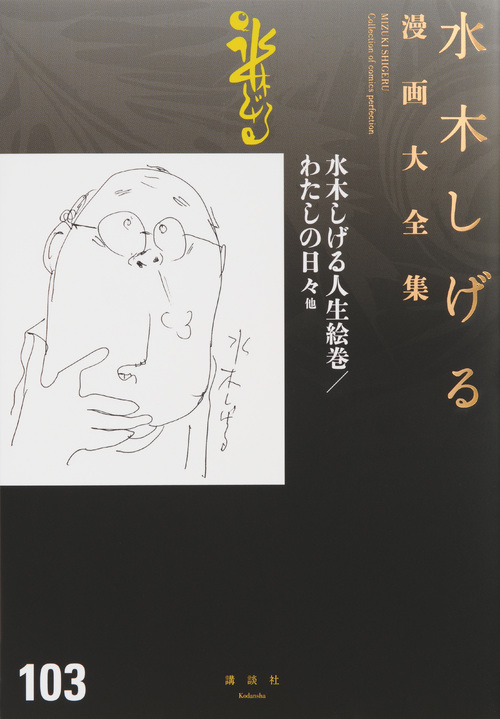 水木しげる
漫画大全集
MIZUKI SHIGERU
Collection of comics perfection
水木しげる
水木しげる人生絵巻／
わたしの日々 他
水木しげる
103
講談社
Kodansha